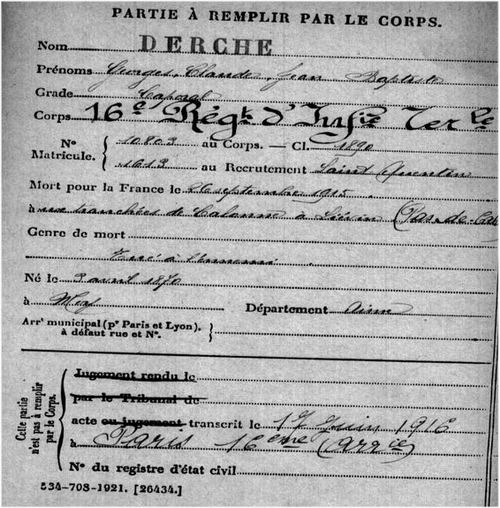 PARTIE À REMPLIR PAR LE CORPS.
Nom DERCHE
Prénoms Georges, Claude, Jean Baptiste
Grade Caporal
Corps 16e Régt d'Infie Terle
N° Matricule. { 10803 au Corps. — Cl. 1890
1613 au Recrutement Saint Quentin
Mort pour la France le 26 septembre 1915
à aux tranchées de Calonne à Liévin (Pas-de-Cal
Genre de mort
Tué à l'ennemi
Né le 3 avril 1870
à Département Aisne
Arrt municipal (pr Paris et Lyon), à défaut rue et N°. {
Cette partie n'est pas à remplir par le Corps. {
Jugement rendu le
par le Tribunal de
acte ou jugement transcrit le 17 Juin 1916
à Paris 16eme (arrt)
N° du registre d'état civil
534-708-1921. [26434.]